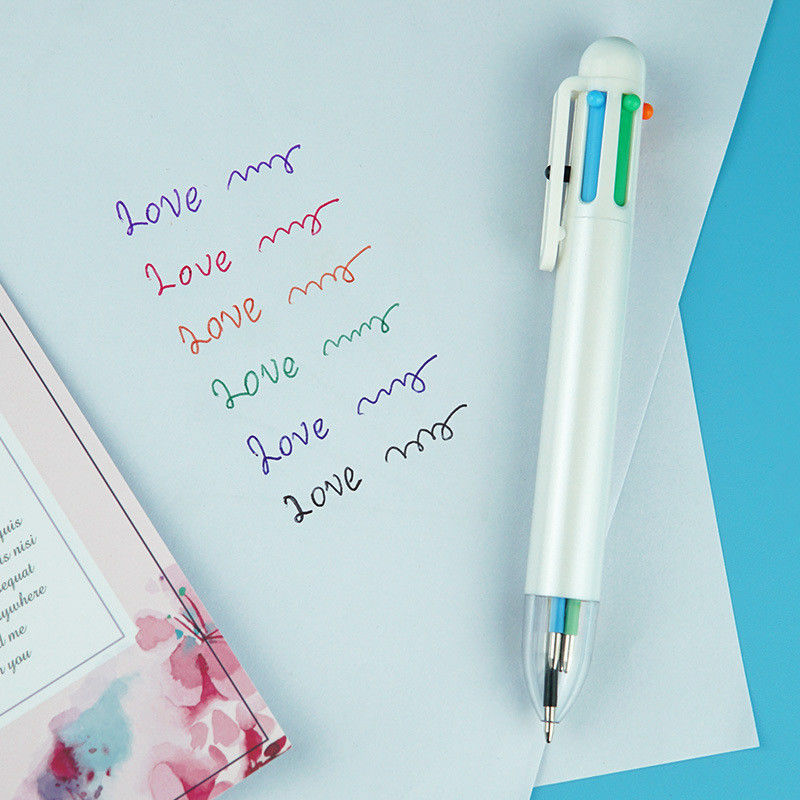 Love
Love
Love
Love
Love
Love
quis
is nisi
equat
ywhere
d me
you